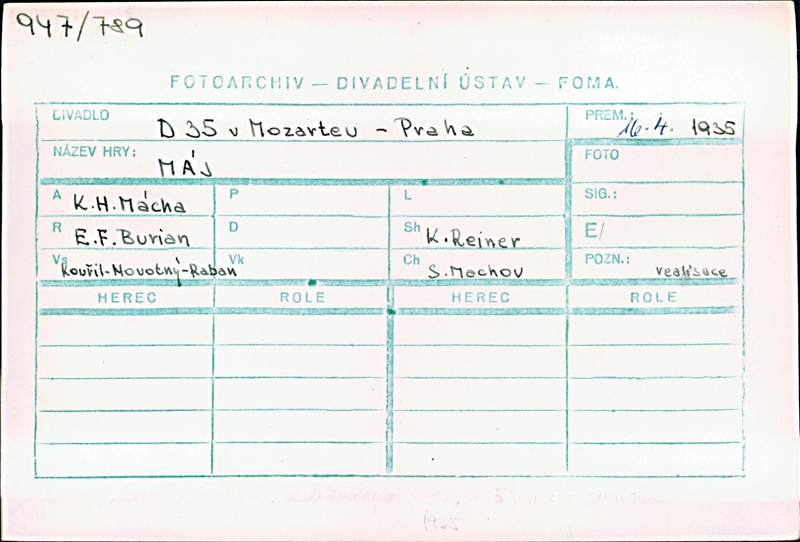 947/789
FOTOARCHIV — DIVADELNÍ ÚSTAV — FOMA.
DIVADLO D 35 v Mozarteu - Praha
PREM.: 16.4. 1935
NÁZEV HRY: MÁJ
FOTO
A K.H.Mácha P L SIG.:
R E.F.Burian D Sh K.Reiner E/
Vs Kouřil-Novotný-Raban Vk Ch S.Machov POZN.: realisace
HEREC ROLE HEREC ROLE
1935